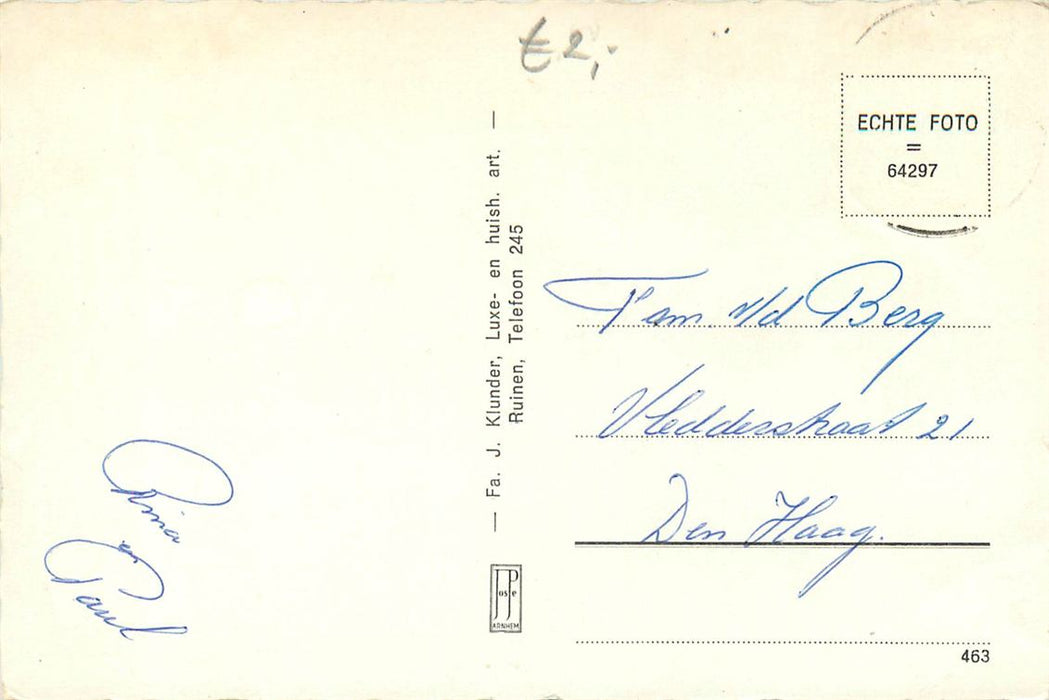 € 2,-
ECHTE FOTO
=
64297
— Fa. J. Klunder, Luxe- en huish. art. —
Ruinen, Telefoon 245
Fam. v/d Berg
Vledderstraat 21
Den Haag.
Rina
en
Paul
JosPe
ARNHEM
463